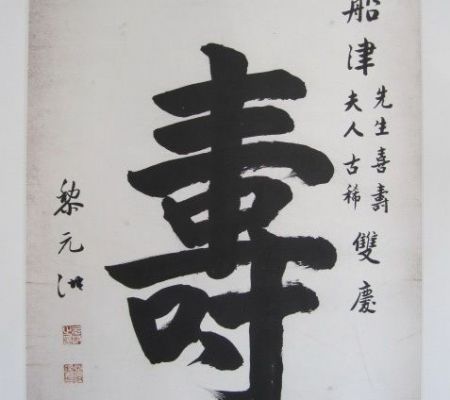 船津
先生喜壽
夫人古稀
雙慶
壽
黎元洪